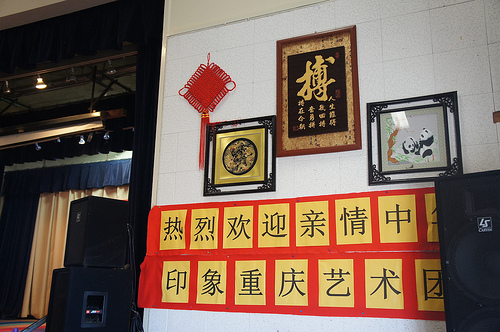 搏
热烈欢迎亲情中
印象重庆艺术团